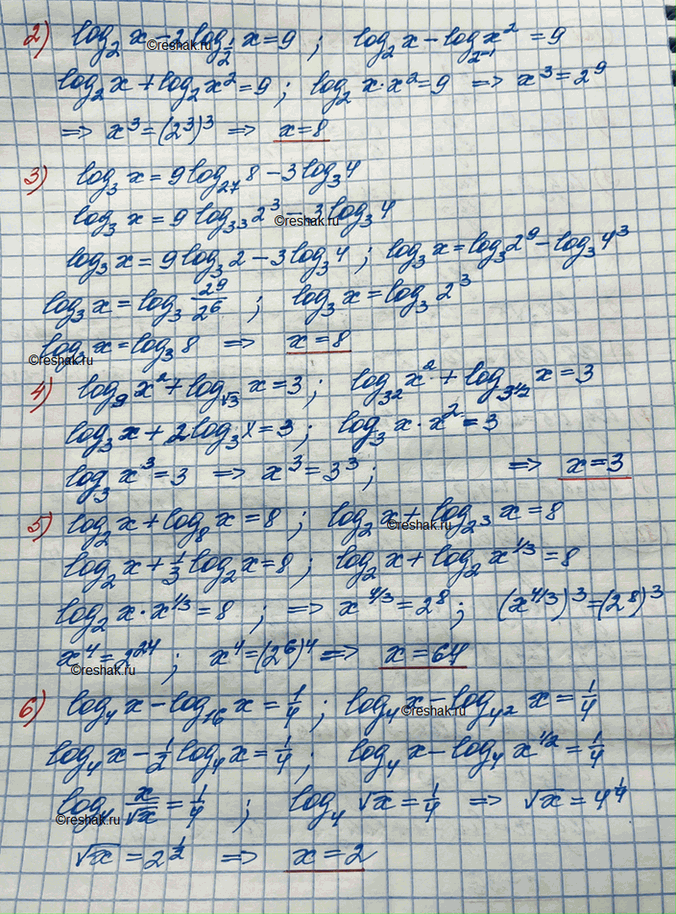 2) log₂ x − 2 log_{1/2} x = 9 ; log₂ x − log_{2⁻¹} x² = 9
log₂ x + log₂ x² = 9 ; log₂ x · x² = 9 ⟹ x³ = 2⁹
⟹ x³ = (2³)³ ⟹ x = 8
3) log₃ x = 9 log₂₇ 8 − 3 log₃ 4
log₃ x = 9 log_{3³} 2³ − 3 log₃ 4
log₃ x = 9 log₃ 2 − 3 log₃ 4 ; log₃ x = log₃ 2⁹ − log₃ 4³
log₃ x = log₃ 2⁹/2⁶ ; log₃ x = log₃ 2³
log₃ x = log₃ 8 ⟹ x = 8
4) log₉ x² + log_{√3} x = 3 ; log_{3²} x² + log_{3^{1/2}} x = 3
log₃ x + 2 log₃ x = 3 ; log₃ x · x² = 3
log₃ x³ = 3 ⟹ x³ = 3³ ; ⟹ x = 3
5) log₂ x + log₈ x = 8 ; log₂ x + log_{2³} x = 8
log₂ x + 1/3 log₂ x = 8 ; log₂ x + log₂ x^{1/3} = 8
log₂ x · x^{1/3} = 8 ; ⟹ x^{4/3} = 2⁸ ; (x^{4/3})³ = (2⁸)³
x⁴ = 2²⁴ ; x⁴ = (2⁶)⁴ ⟹ x = 64
6) log₄ x − log₁₆ x = 1/4 ; log₄ x − log_{4²} x = 1/4
log₄ x − 1/2 log₄ x = 1/4 ; log₄ x − log₄ x^{1/2} = 1/4
log₄ x/√x = 1/4 ; log₄ √x = 1/4 ⟹ √x = 4^{1/4}
√x = 2^{1/2} ⟹ x = 2
©reshak.ru
©reshak.ru
©reshak.ru
©reshak.ru
©reshak.ru
©reshak.ru
©reshak.ru